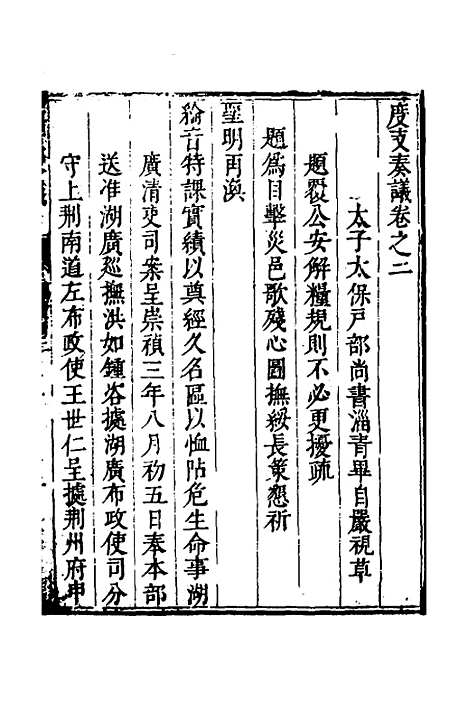 度支奏議卷之二
太子太保戶部尚書淄青畢自嚴視草
題覆公安解糧規則不必更擾疏
題爲目擊災邑歌殘心圖撫綏長策懇祈
聖明再渙
綸音特課實績以奠經久名區以恤阽危生命事湖
廣清吏司案呈崇禎三年八月初五日奉本部
送准湖廣廵撫洪如鍾咨據湖廣布政使司分
守上荆南道左布政使王世仁呈據荆州府申